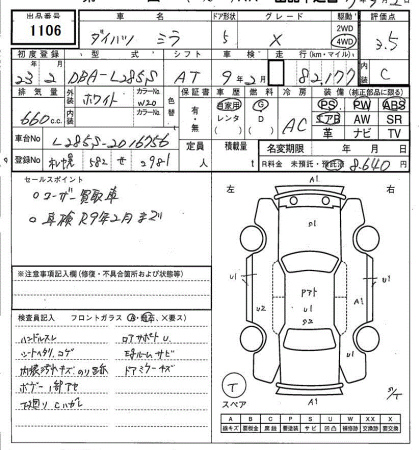 出品番号 車名 ドア形状 グレード 駆動 評価点
1106 ダイハツ ミラ 5 X 2WD 4WD 3.5
初度登録 型式 シフト 車検 走行(km・マイル) 内装
23 2 DBA-L285S AT 9年2月 82,177 C
排気量 外装 カラーNo. 色替 保証書 車歴 燃料 冷房 装備(純正部品に限る)
660cc ホワイト W20 有・無 自家用 レンタ G D AC PS PW ABS
内装 カラーNo. エアB AW SR
革 ナビ TV
車台No. L285S-2016756 定員 人 積載量 t 名変期限 年 月 日
札幌 582 せ 2981 R料金 未預託・預託済 8,640円
セールスポイント
○ユーザー買取車
○車検R9年2月まで
※注意事項記入欄(修復・不具合箇所および状態等)
検査員記入 フロントガラス
ハンドルスレ ロアサポートU
シートヘタリ、コゲ
ボデー1部サビ ドアミラーキズ
下廻り Cハガレ
左 右
A1
U1
U2
U1
U1
A1
T
スペア
A B C P S U W 補修跡 X XX X
線キズ 要板金 腐蝕 要塗装 サビ 凹 交換跡 要交換